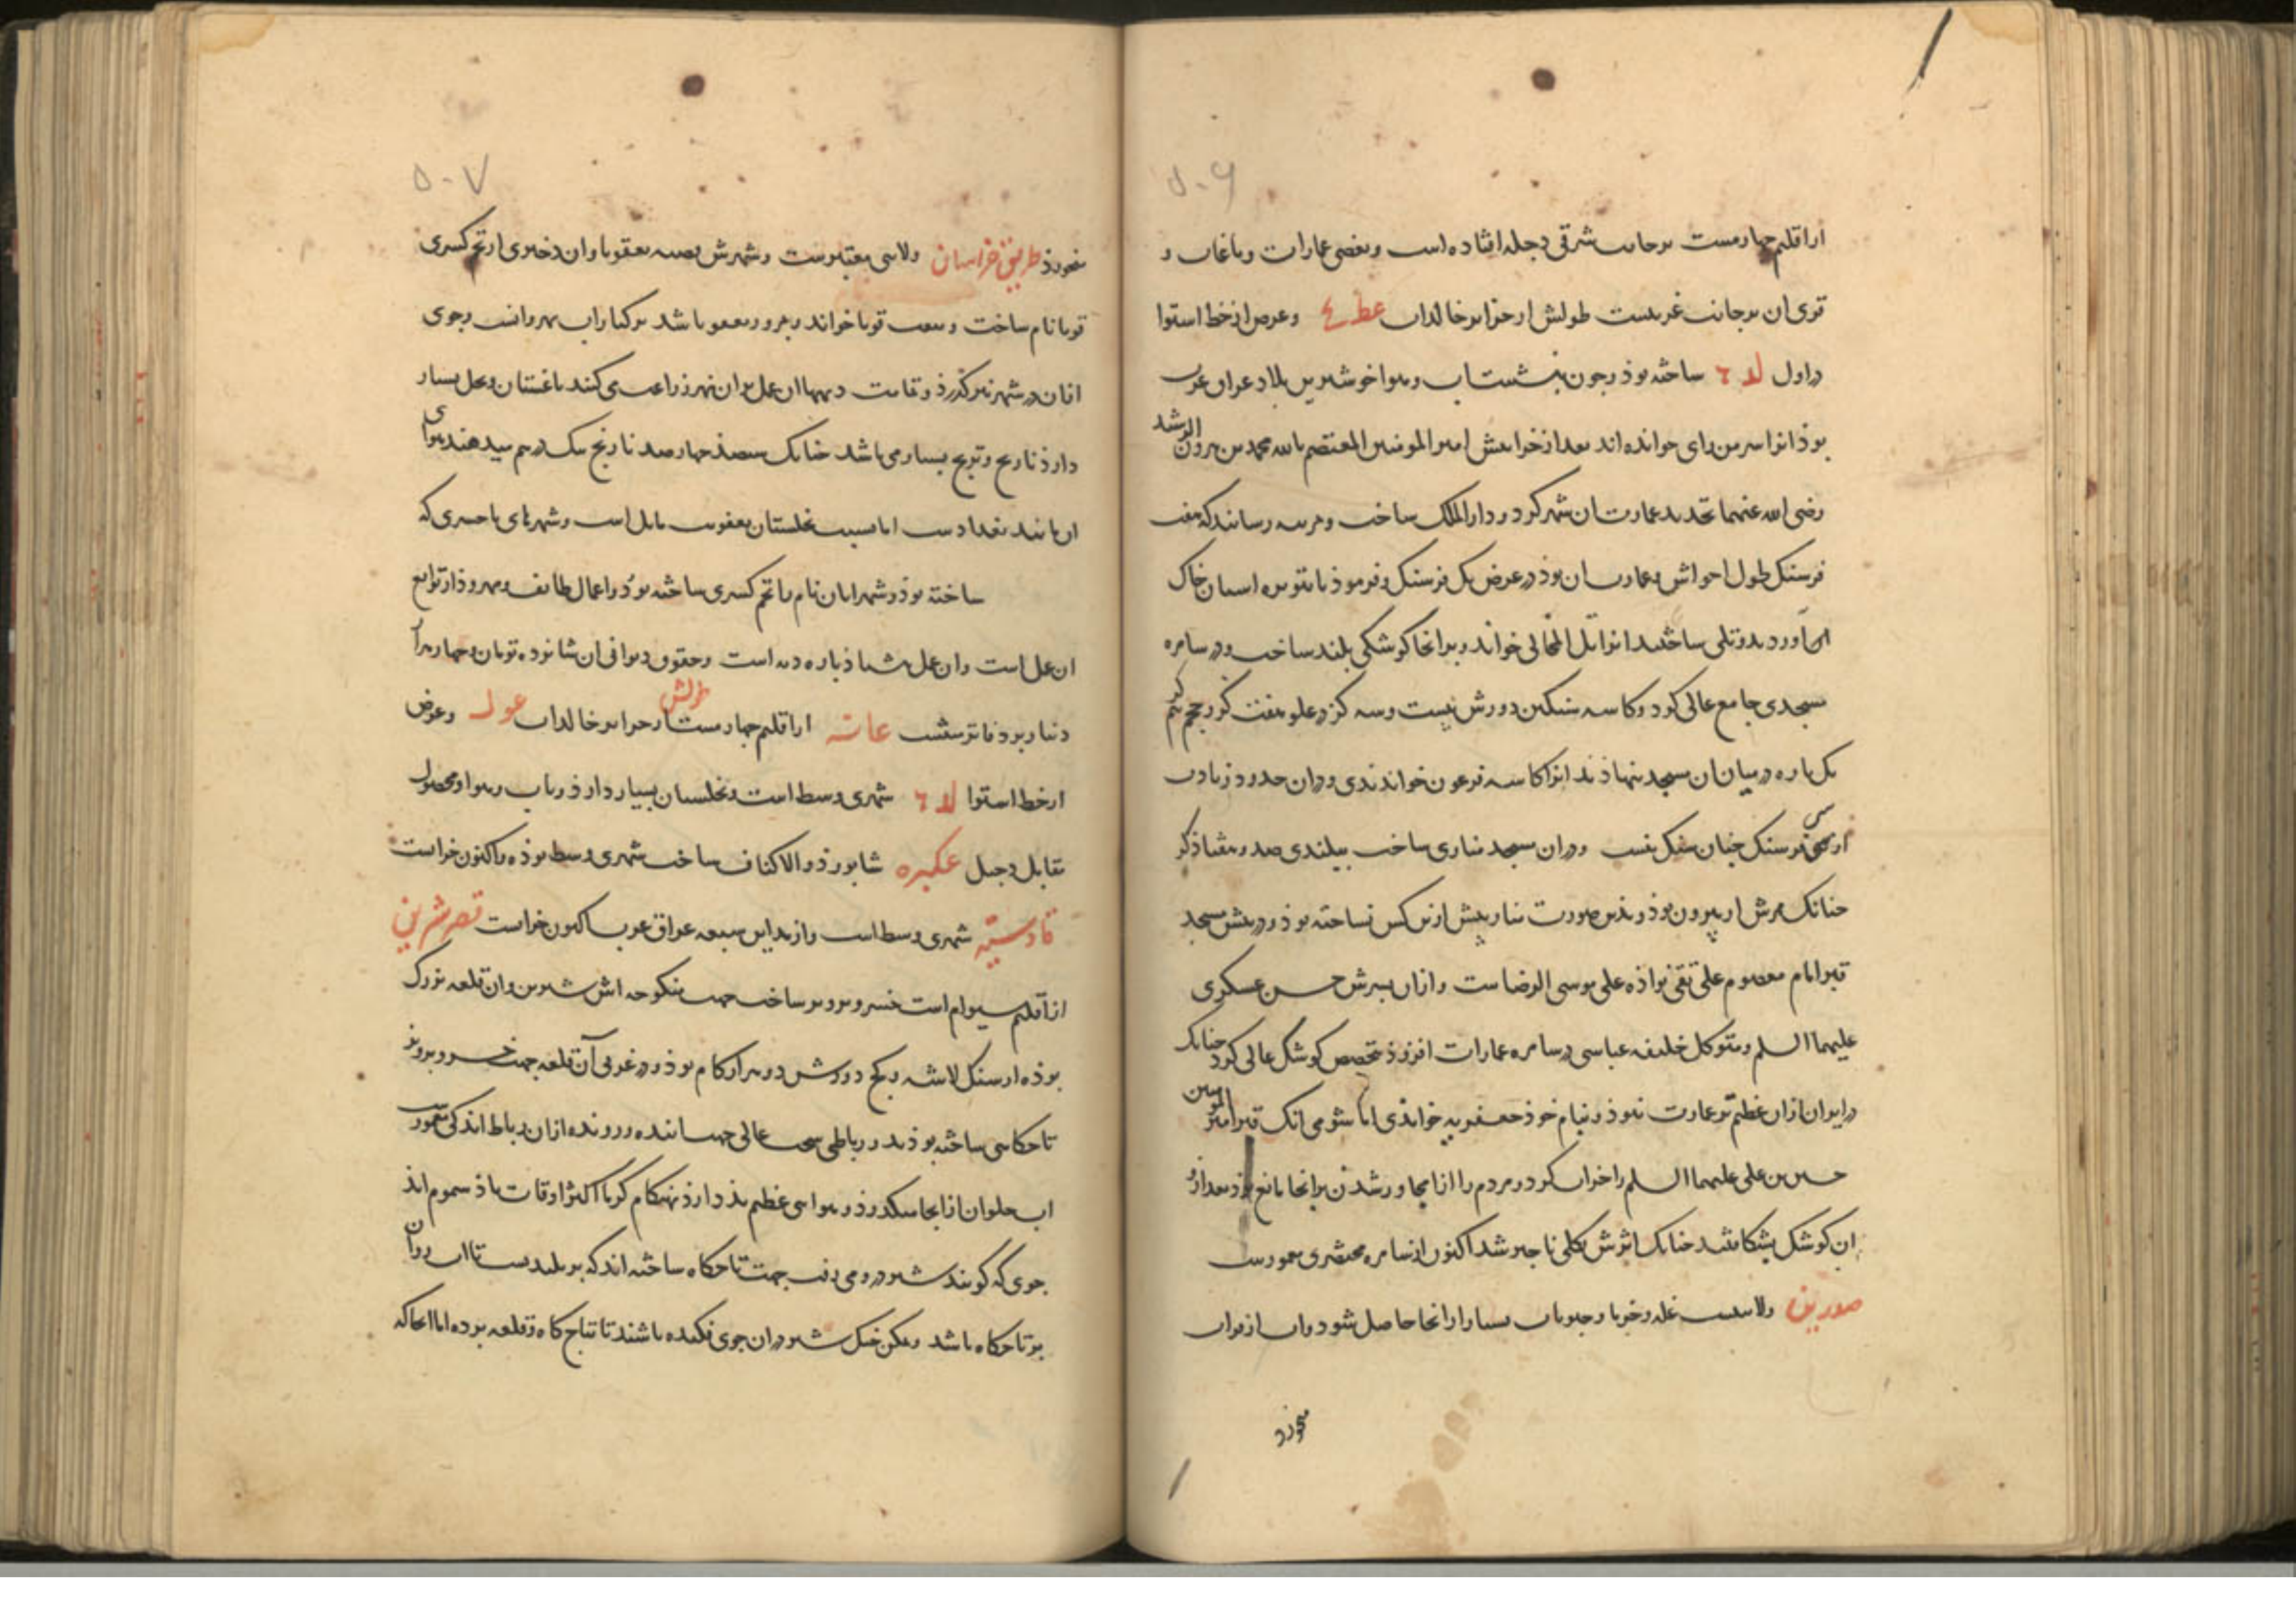 ۵۰۶
از اقلیم چهارمست بر جانب شرقی دجله افتاده است و بعضی عمارات و باغات و
قری ان بر جانب غربیست طولش از جزایر خالدات عط ع وعرض از خط استوا
در اول لد ٦ ساخته بوذ وجون بنشست اب وهوا خوشترین بلاد عراق عرب
بوذ انرا سر من رای خوانده اند بعد از خرابیش امیر المومنین المعتصم بالله محمد بن هرون الرشد
رضی الله عنهما تجدید عمارت ان شهر کرد و دار الملک ساخت و مرتبه رسانید که هفت
فرسنک طول احواش وعمارت ان بوذ در عرض یک فرسنک و فرموذ تا بتوبره اسبان خاک
اوردند و تلی ساختند انرا تل المخالی خواند و بر انجا کوشکی بلند ساخت و در سامره
مسجدی جامع عالی کرد و کاسه سنکین دورش بیست وسه کز در علو هفت کز و حجم نیم کز
یک باره در میان ان مسجد بنهاذند انرا کاسه فرعون خواندندی و دران حدود زیادت
از سی فرسنک چنان سنک نیست و دران مسجد مناری ساخت ببلندی صد و هفتاذ کز
چنانک ممرش از بیرون بوذ و بذین صورت منار پیش ازین کس نساخته بوذ و در پیش مسجد
قبر امام معصوم علی نقی نواذه علی موسی الرضاست و ازان پسرش حسن عسکری
علیهما السلم و متوکل خلیفه عباسی در سامره عمارات افزوذ بتخصیص کوشک عالی کرد چنانک
در ایران ازان عظیم تر عمارت نبوذ و بنام خوذ جعفریه خواندی اما شومی انک قبر امیر المومنین
حسین بن علی علیهما السلم را خراب کرد و مردم را از مجاورشدن بر انجا مانع بوذ بعد ازو
ان کوشک بشکافتند چنانک اثرش بکلی ناچیز شد اکنون از سامره مختصری معمورست
صدرین ولایتیست غله وخرما وحبوبات بسیار از انجا حاصل شود وان از نهروان
میخورد
۵۰۷
میخورد طریق خراسان ولایتی معتبرست و شهرش قصبه بعقوبا وان دختری از تخم کسری
قوبا نام ساخت و بیعت قوبا خواند و بمرور بعقوبا شد بر کنار اب نهروانست وجوی
ازان در شهر نیز کذرذ و تمامت دیهها ان عمل بران نهر زراعت می کنند باغستان و نخل بسیار
دارد نارنج و ترنج بسیار می باشد چنانک سیصد چهارصد نارنج بیک درم میدهند هوای
ان مانند بغداد ست اما بسبب نخلستان بعفونت مایل است و شهرهای باجسری که
ساخته بوذ و شهرابان نام با تخم کسری ساخته بوذ و اعمال طابق و مهروذ از توابع
ان عمل است وان عمل هشتاذ باره دیه است وحقوق دیوانی ان شانزده تومان وچهار هزار
دینار بروی دفاتر مثبت عانه از اقلیم چهارمست طولش از جزایر خالدات عول وعرض
از خط استوا لد ٦ شهری وسط است ونخلستان بسیار دارد و اب وهوا ومحصول
مقابل دجیل عکبره شابور ذو الاکتاف ساخت شهری وسط بوذه واکنون خرابست
قادسیه شهری وسط است و از مداین سبعه عراق عرب اکنون خرابست قصر شیرین
از اقلیم سیوام است خسرو پرویز ساخت جهت منکوحه اش شیرین وان قلعه بزرک
بوذه از سنک لاشه و کج دورش دو هزار کام بوذ و در غربی آن قلعه جهت خسرو پرویز
تاحکاهی ساخته بوذند و رباطی سخت عالی جهت اینده ورونده ازان رباط اندکی معمورست
اب حلوان از انجا میکذرذ و هوایی عظیم بذ دارذ بهنکام کرما اکثر اوقات باذ سموم اید
جوی که کویند شیر درو می رفت جهت تاحکاه ساخته اند که بر بلندیست تا اب روان
بر تاحکاه باشد و ممکن خیک شیر دران جوی فکنده باشند تا بتاج کاه و قلعه برده اما انجا که